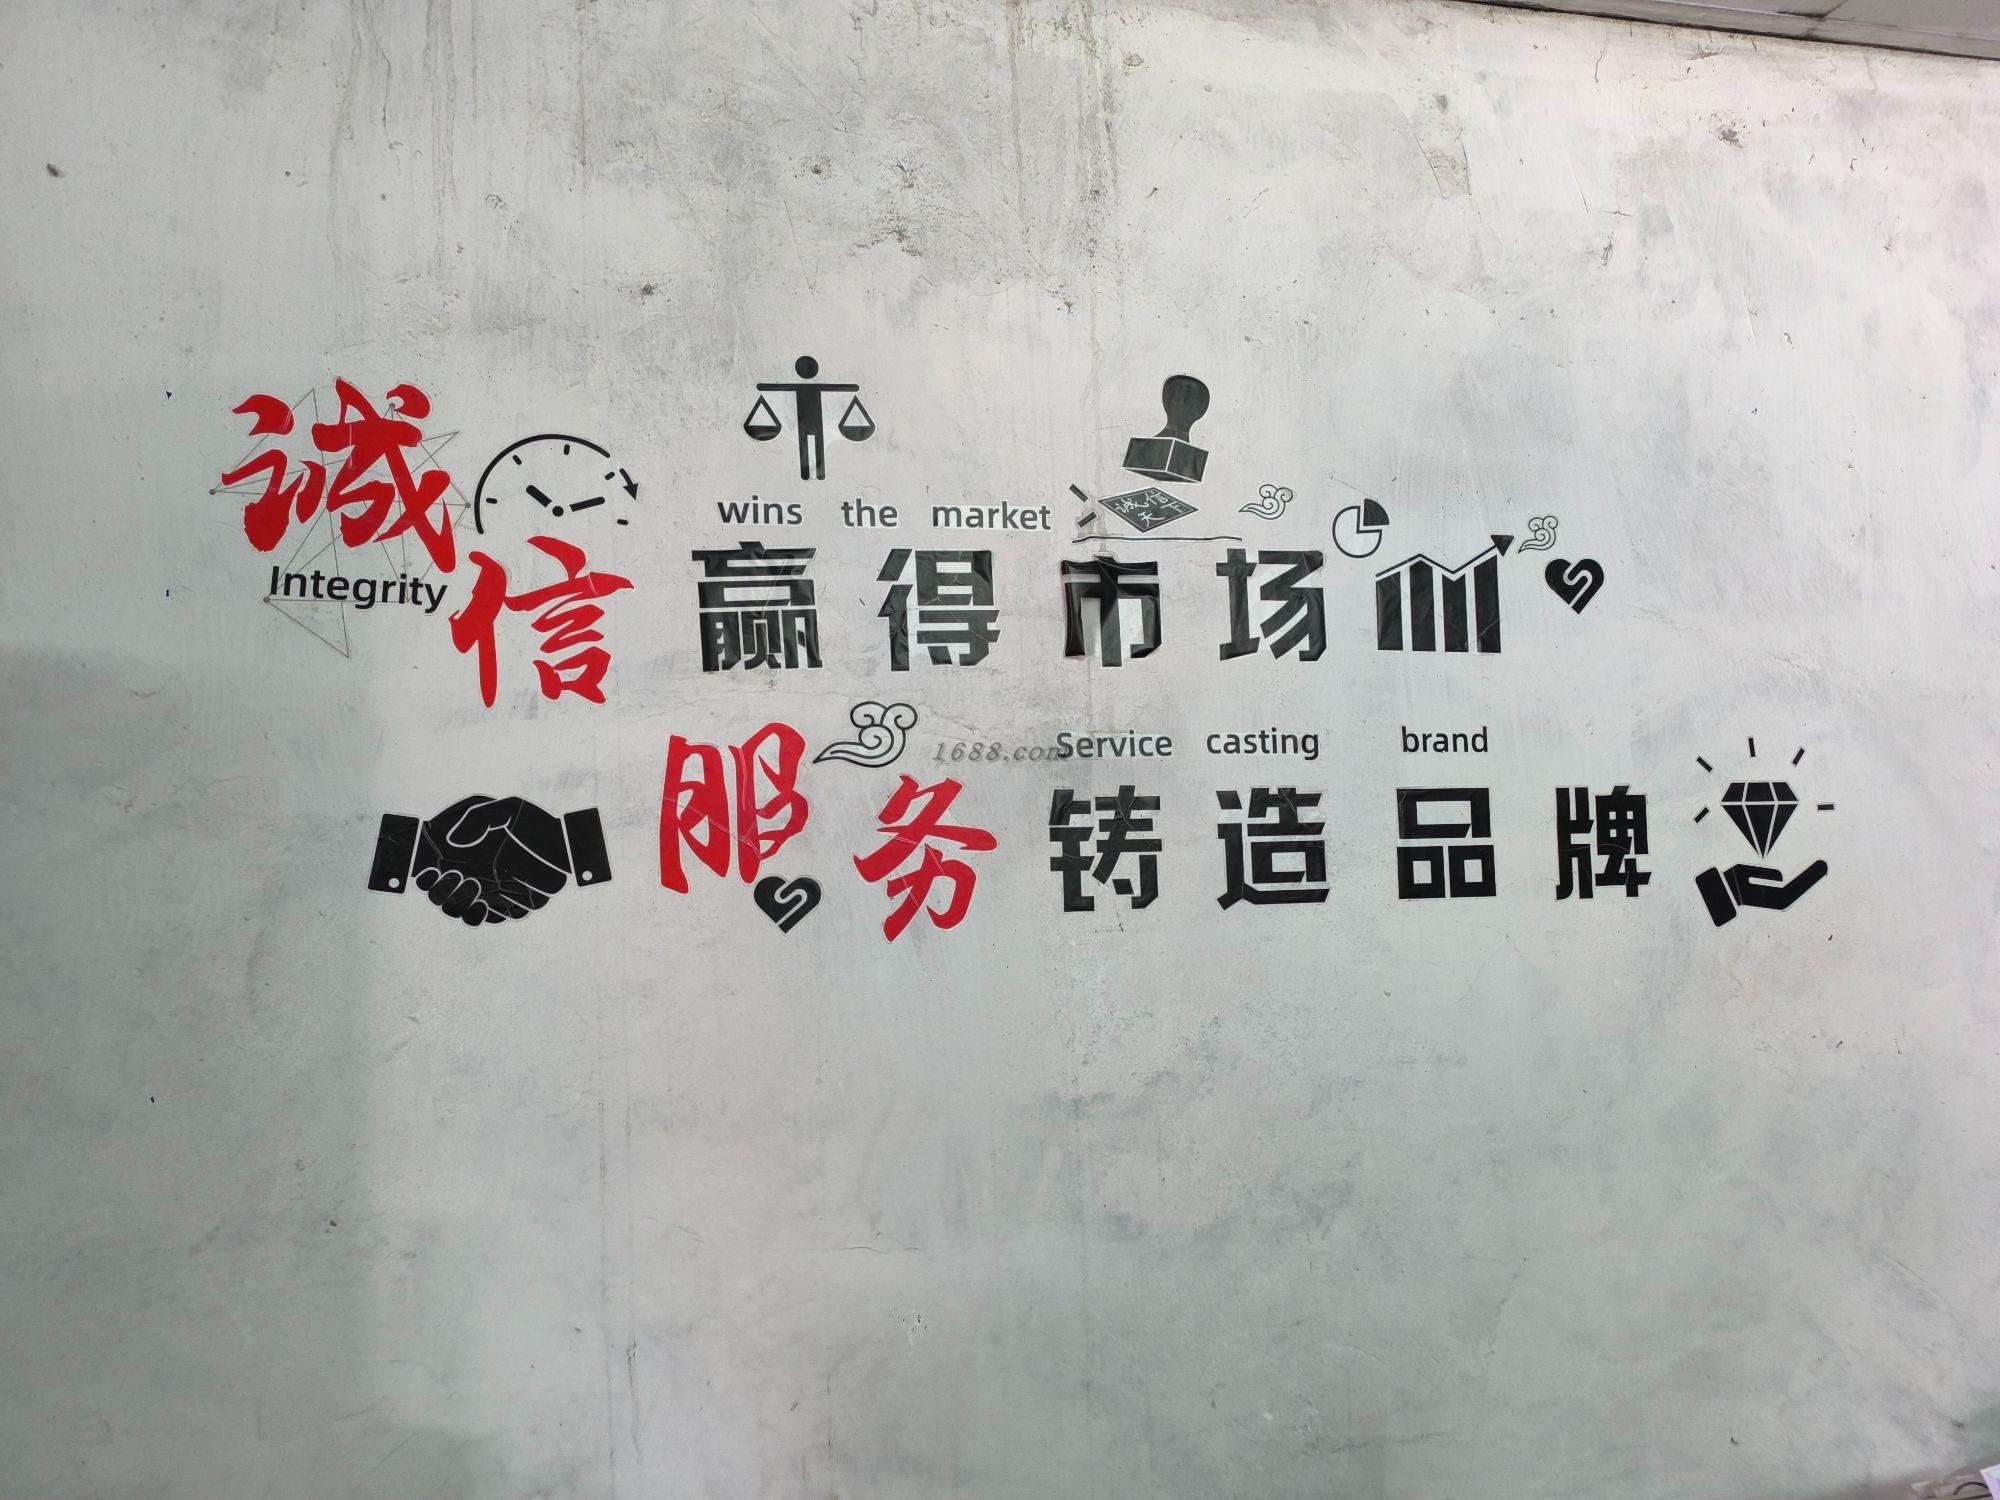 wins the market
诚信赢得市场
Integrity
1688.com
Service casting brand
服务铸造品牌